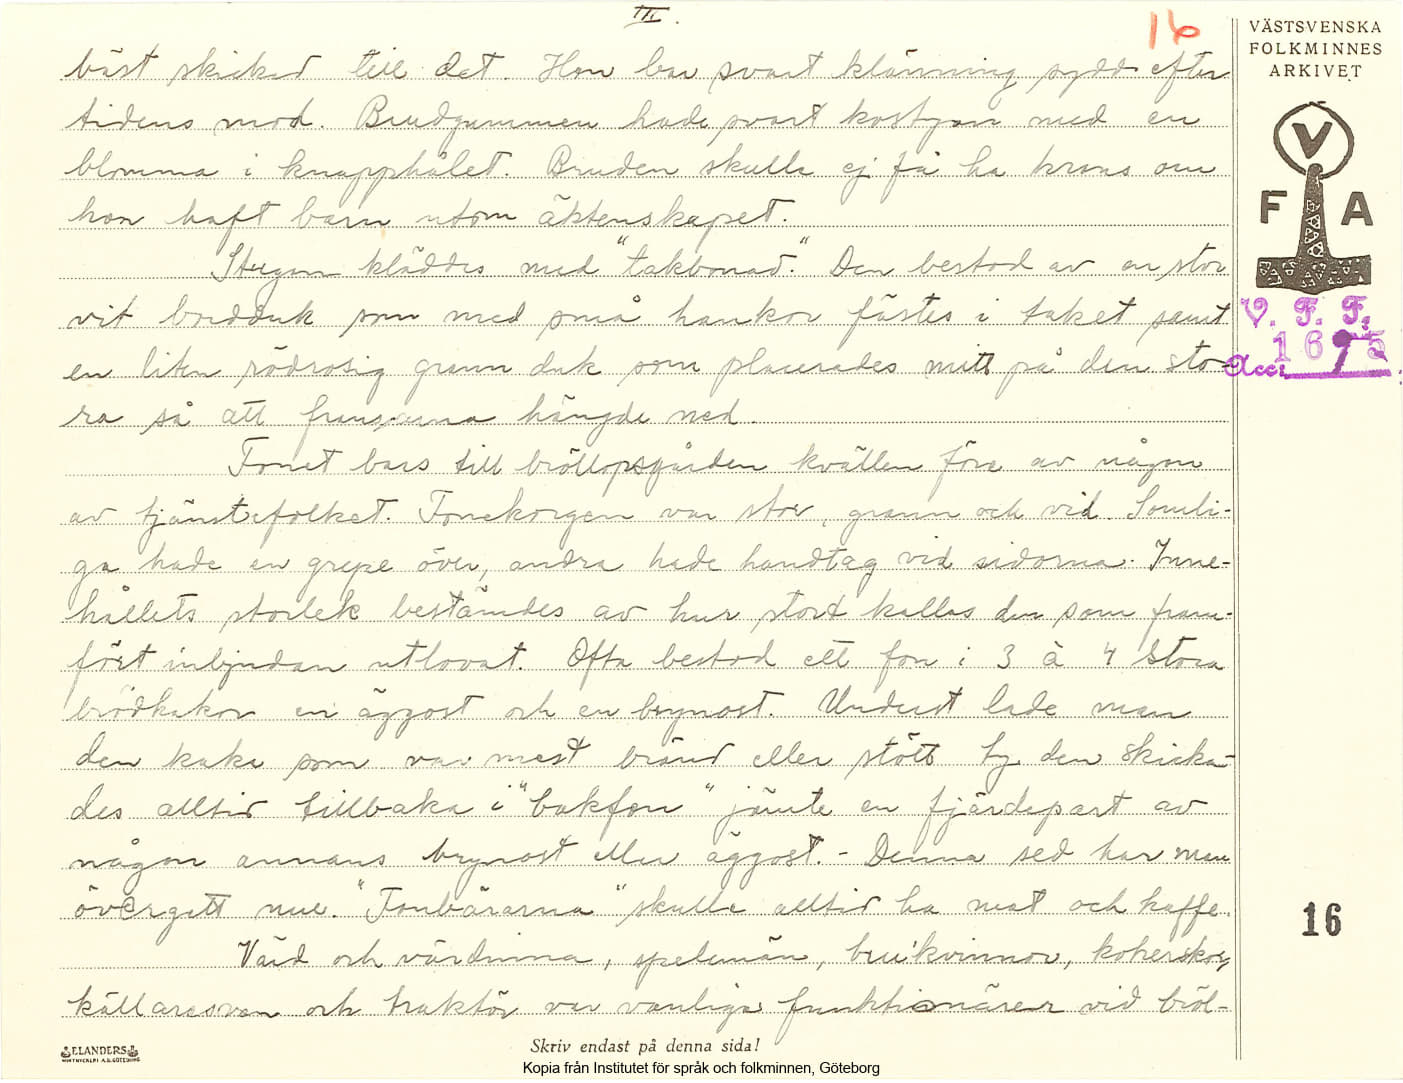 III.
16
VÄSTSVENSKA
FOLKMINNES
ARKIVET
V
F A
V. F. F.
1675
Acc.
bäst skickad till det. Hon bar svart klänning sydd efter
tidens mod. Brudgummen hade svart kostym med en
blomma i knapphålet. Bruden skulle ej få ha krans om
hon haft barn utom äktenskapet.
Stugan kläddes med "takbonad". Den bestod av en stor
vit bordduk som med små hankor fästes i taket samt
en liten rödrosig grann duk som placerades mitt på den sto-
ra så att fransarna hängde ned.
Fonet bars till bröllopsgården kvällen före av någon
av tjänstefolket. Fonekorgen var stor, grann och vid. Somli-
ga hade en grepe över, andra hade handtag vid sidorna. Inne-
hållets storlek bestämdes av hur stort kallas den som fram-
fört inbjudan utlovat. Ofta bestod ett fon i 3 à 4 stora
brödkakor en äggost och en brynost. Underst lade man
den kaka som var mest bränd eller stött ty den skicka-
des alltid tillbaka i "bakfon" jämte en fjärdepart av
någon annans brynost eller äggost. - Denna sed har man
övergett nu. "Fonbärarna" skulle alltid ha mat och kaffe.
Värd och värdinna, spelemän, brukvinnor, kokerskor,
källaresven och traktör var vanliga funktionärer vid bröl-
16
ELANDERS
Skriv endast på denna sida!
Kopia från Institutet för språk och folkminnen, Göteborg